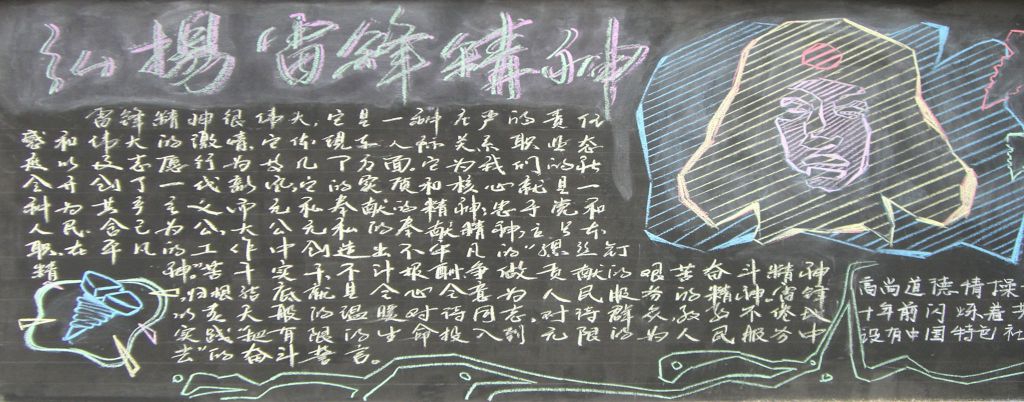 弘扬雷锋精神
雷锋精神很伟大,它具一种庄严的责任
感和伟大的激情,它体现在人际关系职业态
度以及志愿行为等几个方面,它为我们的社
会开创了一代新风,它的实质和核心就是一
种为共产主义而无私奉献的精神;忠于党和
人民、舍己为公、大公无私的奉献精神;立足本
职、在平凡的工作中创造出不平凡的"螺丝钉
精神";苦干实干、不计报酬、争做贡献的艰苦奋斗精神
;归根结底就是全心全意为人民服务的精神。雷锋
以春天般的温暖对待同志,对待群众教教不倦以
实践把有限的生命投入到无限的为人民服务中
去"的奋斗誓言。
高尚道德情操
十年前闪烁着
没有中国特色社